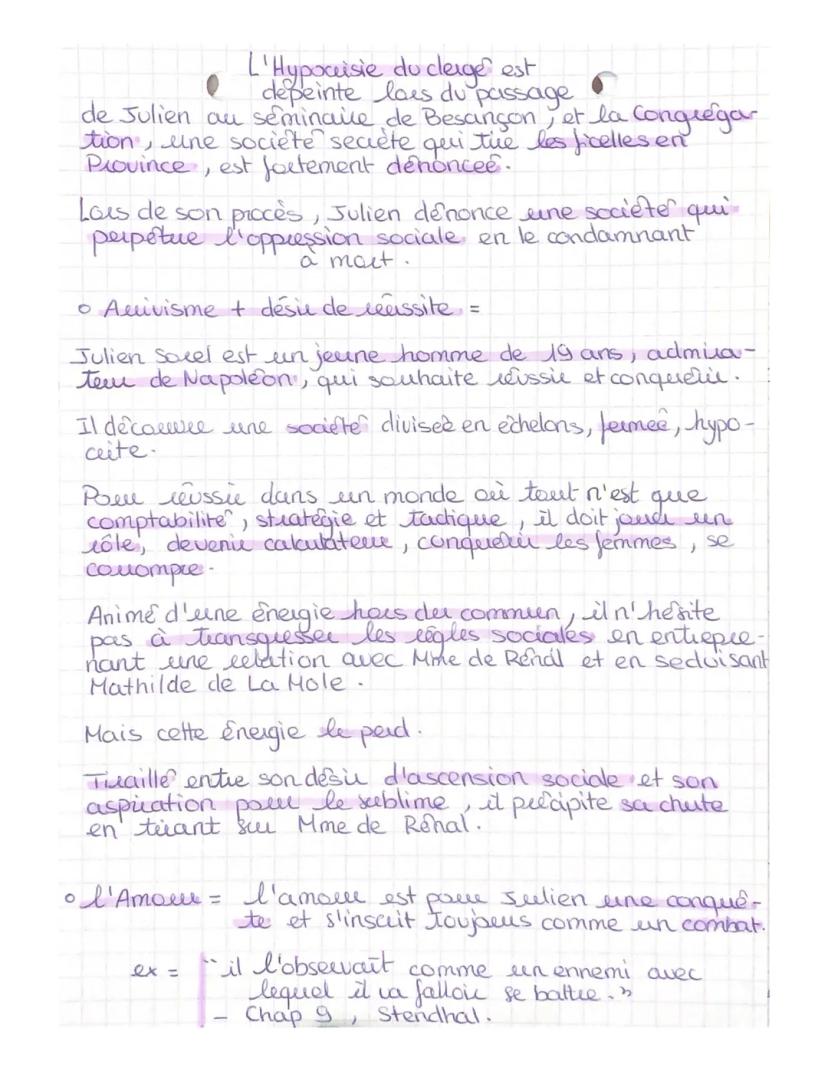 L'Hypocrisie du clergé est
dépeinte lors du passage
de Julien au séminaire de Besançon, et la Congréga-
tion, une société secrète qui tire les ficelles en
Province, est fortement dénoncée.
Lors de son procès, Julien dénonce une société qui
perpétue l'oppression sociale en le condamnant
à mort.
○ Arrivisme + désir de réussite =
Julien Sorel est un jeune homme de 19 ans, admira-
teur de Napoléon, qui souhaite réussir et conquérir.
Il découvre une société divisée en échelons, fermée, hypo-
crite.
Pour réussir dans un monde où tout n'est que
comptabilité, stratégie et tactique, il doit jouer un
rôle, devenir calculateur, conquérir les femmes, se
corrompre.
Animé d'une énergie hors du commun, il n'hésite
pas à transgresser les règles sociales en entrepre-
nant une relation avec Mme de Rênal et en séduisant
Mathilde de La Mole.
Mais cette énergie le perd.
Tiraillé entre son désir d'ascension sociale et son
aspiration pour le sublime, il précipite sa chute
en tirant sur Mme de Rênal.
○ l'Amour = l'amour est pour Julien une conquê-
te et s'inscrit toujours comme un combat.
ex = "il l'observait comme un ennemi avec
lequel il va falloir se battre."
- Chap 9, Stendhal.